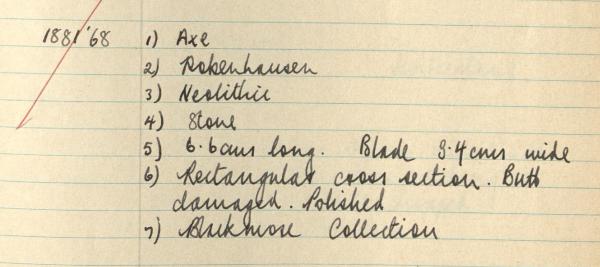 1881'68 1) Axe
2) Robenhausen
3) Neolithic
4) Stone
5) 6.6cms long. Blade 3.4cms wide
6) Rectangular cross section. Butt
damaged. Polished
7) Blackmore Collection